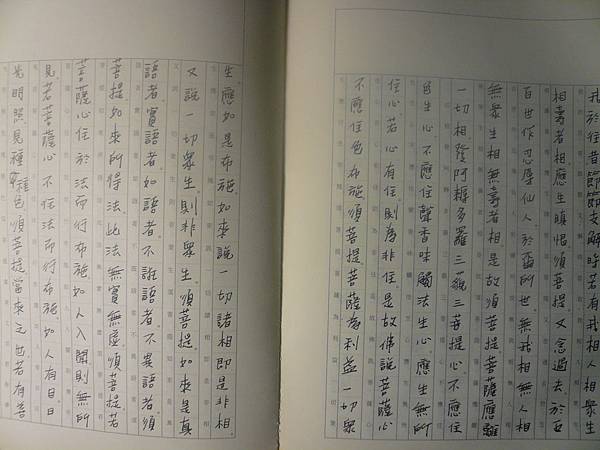 我於往昔節節支解時若有我相人相眾生
相壽者相應生瞋恨須菩提又念過去於五
百世作忍辱仙人於爾所世無我相無人相
無眾生相無壽者相是故須菩提菩薩應離
一切相發阿耨多羅三藐三菩提心不應住
色生心不應住聲香味觸法生心應生無所
住心若心有住則為非住是故佛說菩薩心
不應住色布施須菩提菩薩為利益一切眾
生應如是布施如來說一切諸相即是非相
又說一切眾生則非眾生須菩提如來是真
語者實語者如語者不誑語者不異語者須
菩提如來所得法此法無實無虛須菩提若
菩薩心住於法而行布施如人入闇則無所
見若菩薩心不住法而行布施如人有目日
光明照見種種色須菩提當來之世若有善